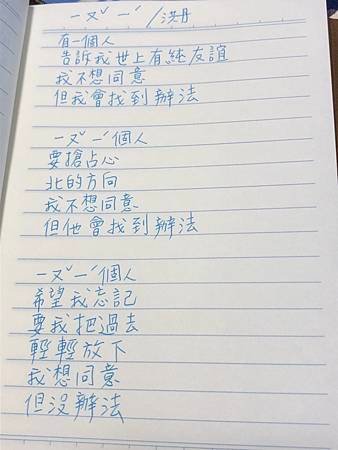 一ㄡˇ一ˊ/洪丹
有一個人
告訴我世上有純友誼
我不想同意
但我會找到辦法
一ㄡˇ一ˊ個人
要搶占心
北的方向
我不想同意
但他會找到辦法
一ㄡˇ一ˊ個人
希望我忘記
要我把過去
輕輕放下
我想同意
但沒辦法